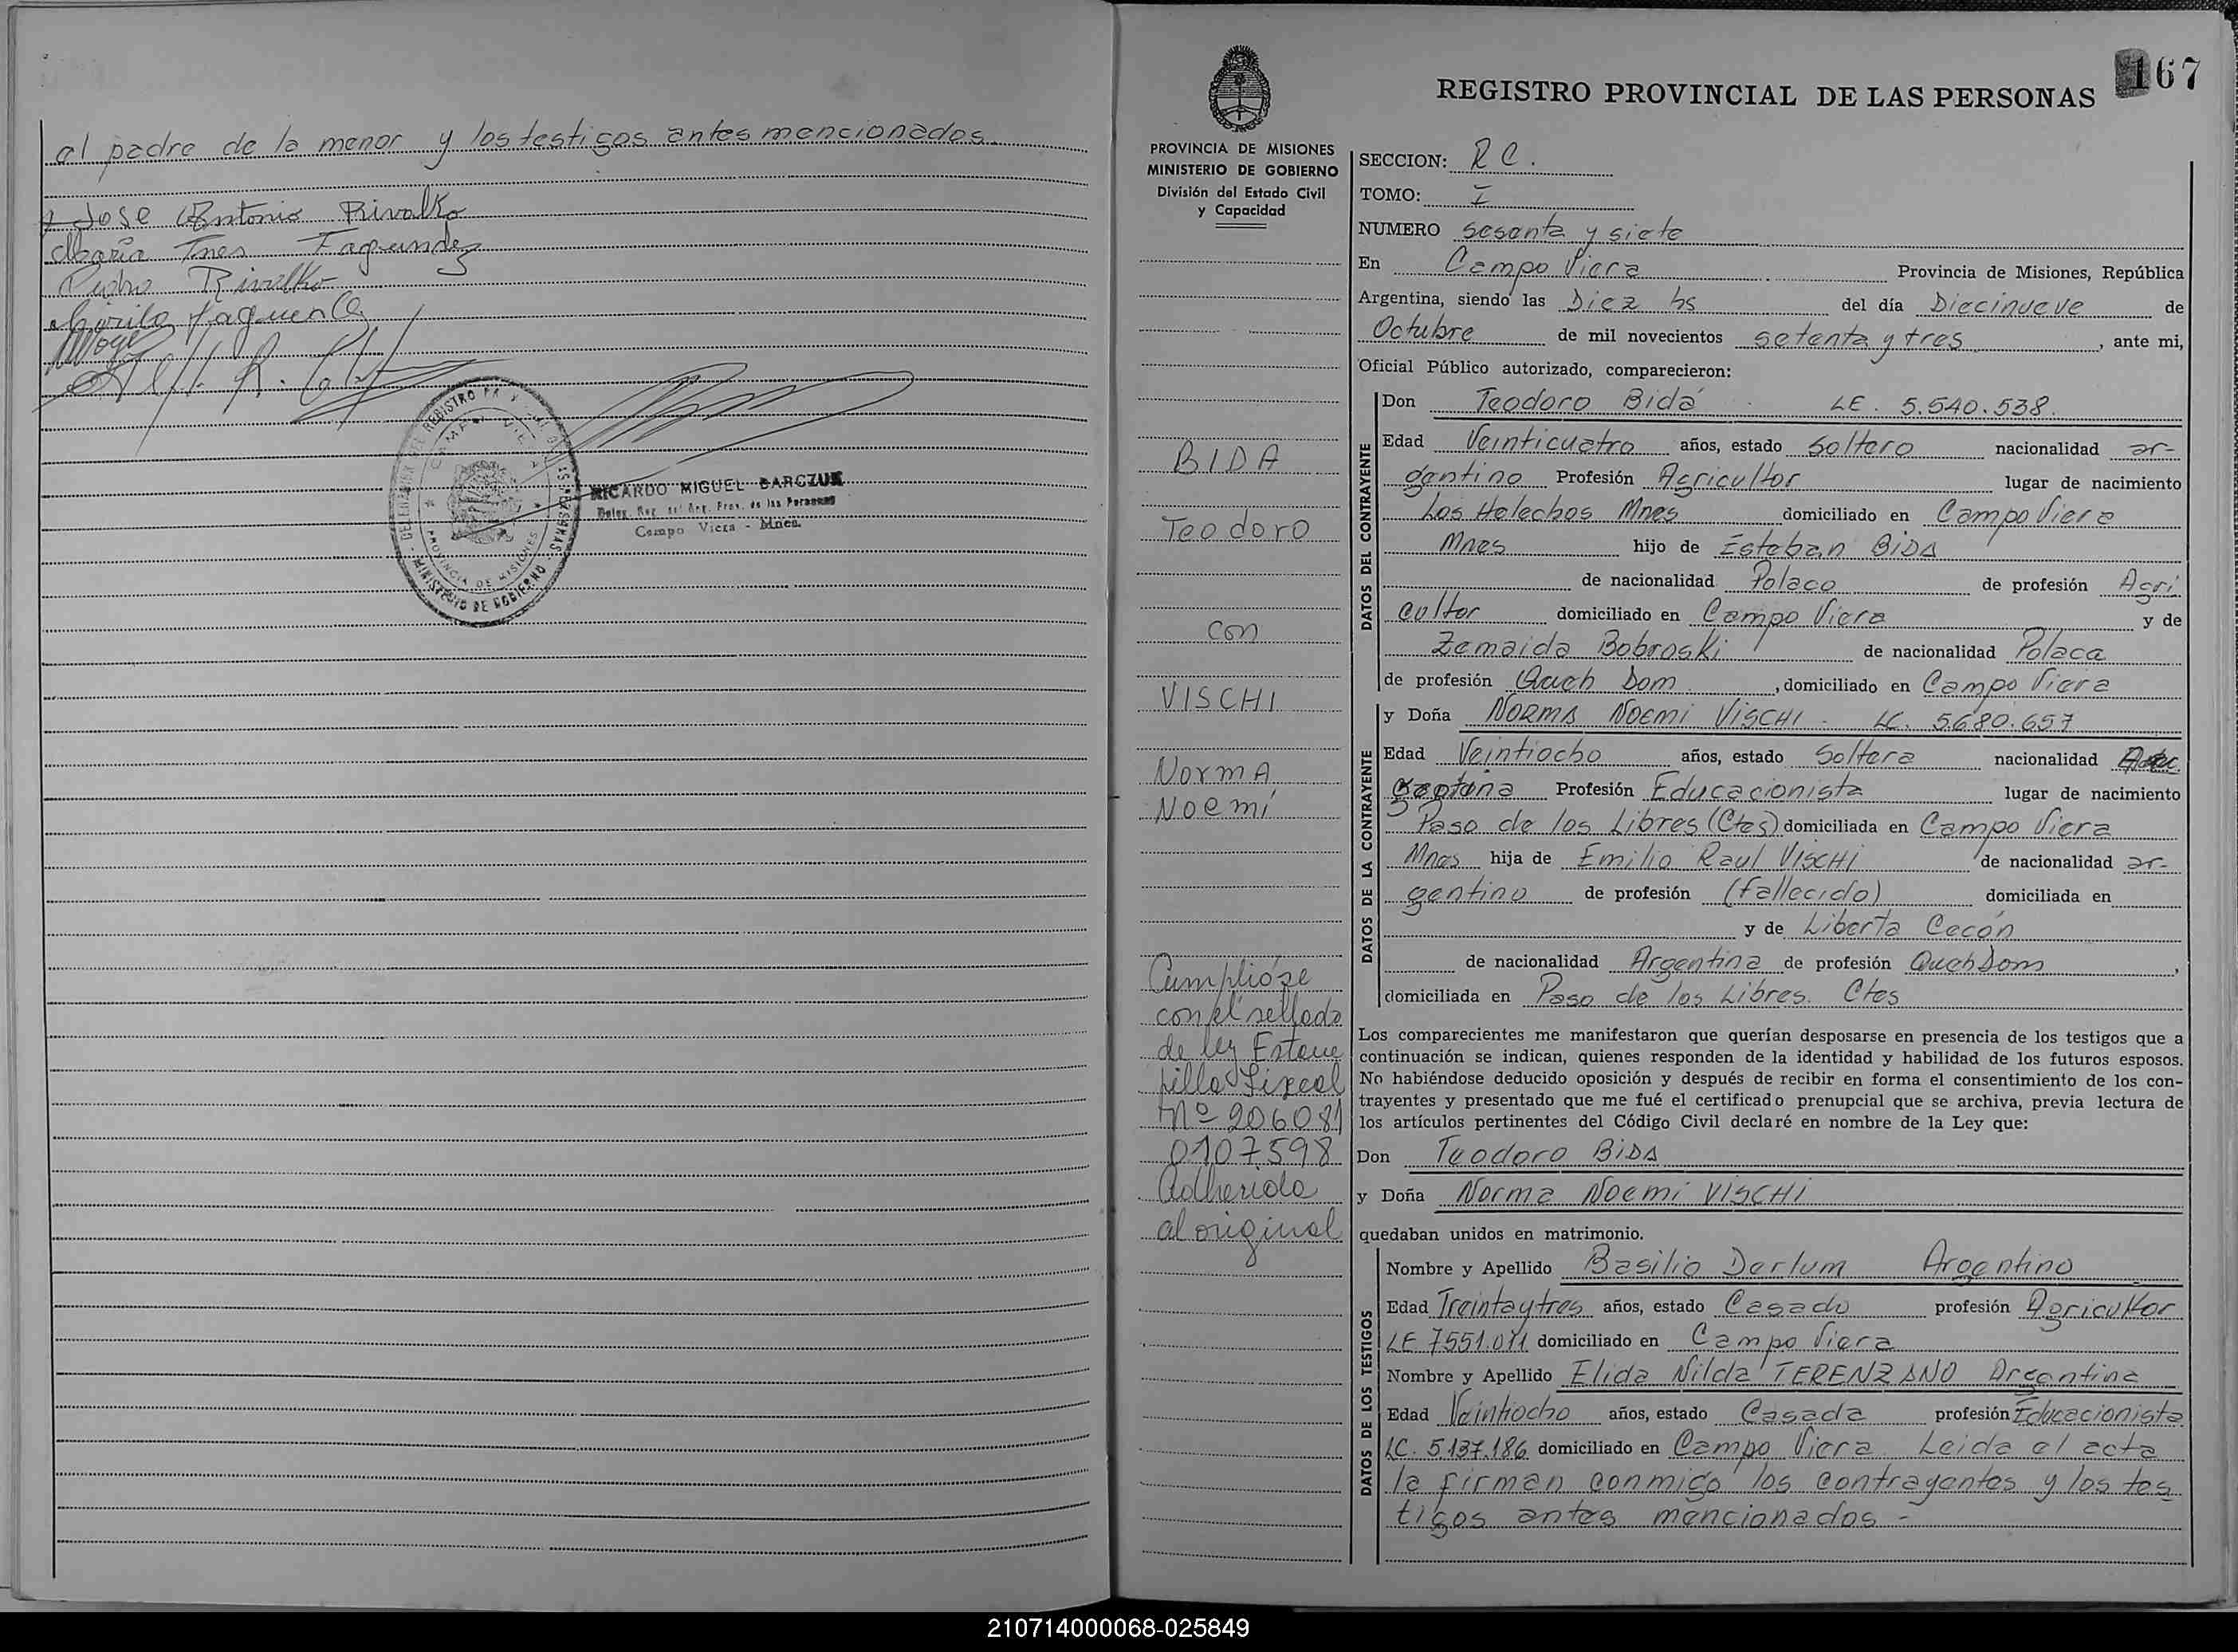 el padre de la menor y los testigos antes mencionados.
Jose Antonio Rivalko
Maria Ines Fagundez
Pedro Rivalko
RICARDO MIGUEL BARCZUK
Deleg. Reg. del Reg. Prov. de las Personas
Campo Viera - Mnes.
REGISTRO PROVINCIAL DE LAS PERSONAS
PROVINCIA DE MISIONES
MINISTERIO DE GOBIERNO
167
REGISTRO PROVINCIAL DE LAS PERSONAS
PROVINCIA DE MISIONES
MINISTERIO DE GOBIERNO
División del Estado Civil
y Capacidad
BIDA
Teodoro
con
VISCHI
NormA
Noemí
Cumplióse
con el sellado
de ley Estam
pilla Fiscal
Nº 206081
0107598
Adherida
al original
SECCION: R C.
TOMO: I
NUMERO sesenta y siete
En Campo Viera Provincia de Misiones, República
Argentina, siendo las Diez hs del día Diecinueve de
Octubre de mil novecientos setenta y tres, ante mi,
Oficial Público autorizado, comparecieron:
DATOS DEL CONTRAYENTE
Don Teodoro Bidá LE. 5.540.538.
Edad Veinticuatro años, estado soltero nacionalidad ar-
gentino Profesión Agricultor lugar de nacimiento
Los Helechos Mnes domiciliado en Campo Viera
Mnes hijo de Esteban BiDA
de nacionalidad Polaco de profesión Agri
cultor domiciliado en Campo Viera y de
Zemaida Bobroski de nacionalidad Polaca
de profesión Queh Dom, domiciliado en Campo Viera
DATOS DE LA CONTRAYENTE
y Doña NORMA NOEMI VISCHI - LC. 5.680.657
Edad Veintiocho años, estado Soltera nacionalidad
gentina Profesión Educacionista lugar de nacimiento
Paso de los Libres (Ctes) domiciliada en Campo Viera
Mnes hija de Emilio Raul VISCHI de nacionalidad ar-
gentino de profesión (fallecido) domiciliada en
y de Liberta Cecón
de nacionalidad Argentina de profesión Queh Dom,
domiciliada en Paso de los Libres. Ctes
Los comparecientes me manifestaron que querían desposarse en presencia de los testigos que a
continuación se indican, quienes responden de la identidad y habilidad de los futuros esposos.
No habiéndose deducido oposición y después de recibir en forma el consentimiento de los con-
trayentes y presentado que me fué el certificado prenupcial que se archiva, previa lectura de
los artículos pertinentes del Código Civil declaré en nombre de la Ley que:
Don Teodoro BiDA
y Doña Norma Noemi VISCHI
quedaban unidos en matrimonio.
DATOS DE LOS TESTIGOS
Nombre y Apellido Basilio Derlum Argentino
Edad Treintaytres años, estado Casado profesión Agricultor
LE 7551.011 domiciliado en Campo Viera
Nombre y Apellido Elida Nilda TERENZANO Argentina
Edad Veintiocho años, estado Casada profesión Educacionista
LC. 5.137.186 domiciliado en Campo Viera. Leida el acta
la firman conmigo los contrayentes y los tes
tigos antes mencionados -
210714000068-025849